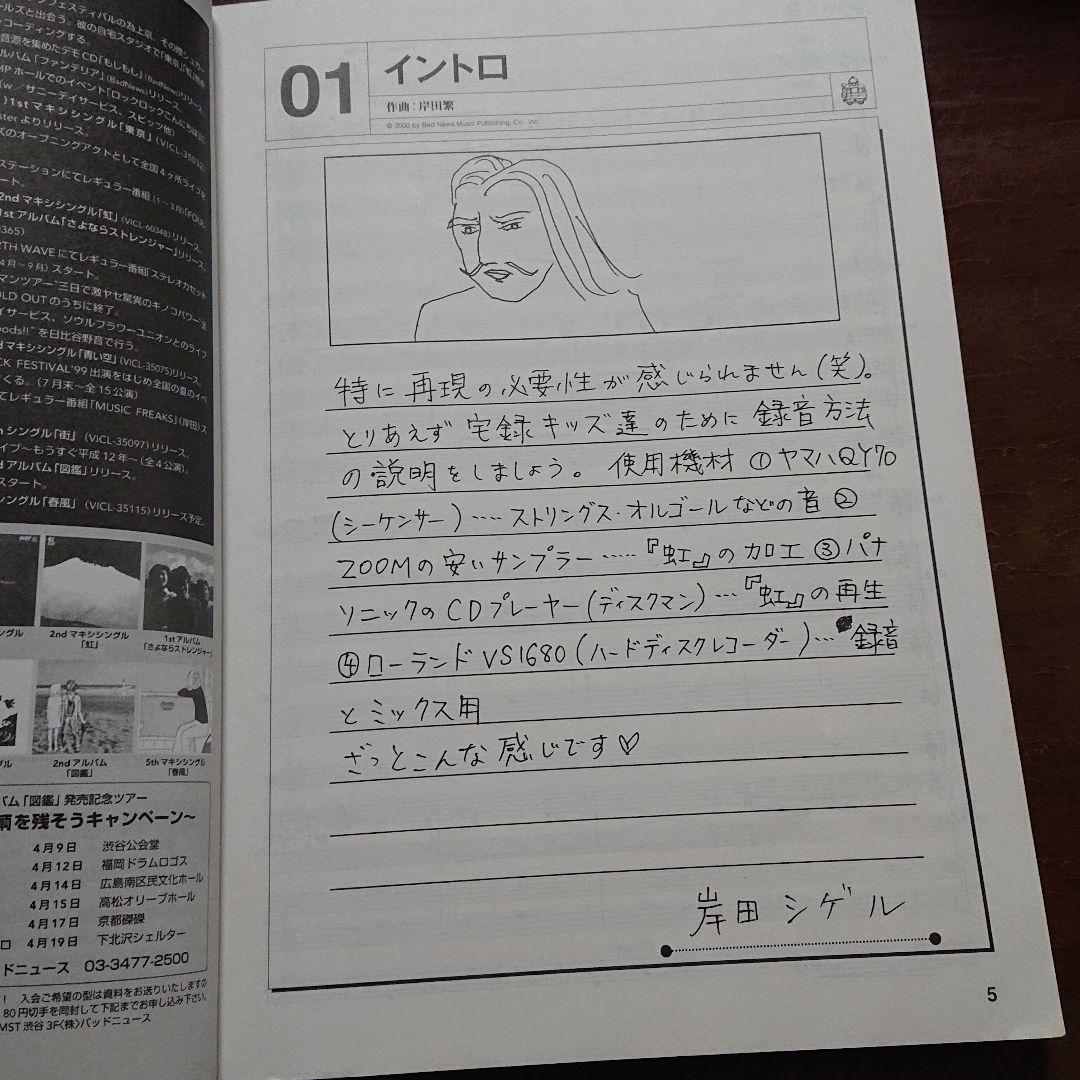 フェスティバルの為上京。その際シュガー
ルズと出会う。彼の自宅スタジオで「東京」「虹」他を
コーディングする。
音源を集めたデモCD「もしもし」(BadNews)リリース
ルバム「ファンデリア」(BadNews)リリース。
MPホールでのイベント「ロックロックこんにちは
(w/サニーデイサービス、スピッツ他)
)1stマキシシングル「東京」(VICL-35032)
sterよりリリース。
ズのオープニングアクトとして全国4ヶ所ライブを
ート。
ステーションにてレギュラー番組(1〜3月)「FOUL
2ndマキシシングル「虹」(VICL-60348)リリース。
1stアルバム「さよならストレンジャー」リリース
0365)
2TH WAVEにてレギュラー番組「ステレオカセット
4月〜9月)スタート。
マンツアー“三日で激ヤセ驚異のキノコパワー”全
OLD OUTのうちに終了。
イサービス、ソウルフラワーユニオンとのライブ
oods!!”を日比谷野音で行う。
dマキシシングル「青い空」(VICL-35075)リリース。
CK FESTIVAL'99出演をはじめ全国の夏のイベ
くる。(7月末〜全15公演)
てレギュラー番組「MUSIC FREAKS」(岸田)ス
hシングル「街」(VICL-35097)リリース。
イブ〜もうすぐ平成12年〜(全4公演)。
dアルバム「図鑑」リリース。
スタート。
シングル「春風」(VICL-35115)リリース予定。
シングル
2ndマキシシングル
「虹」
1stアルバム
「さよならストレンジャー」
グル
2ndアルバム
「図鑑」
5thマキシシングル
「春風」
バム「図鑑」発売記念ツアー
柄を残そうキャンペーン〜
4月9日 渋谷公会堂
4月12日 福岡ドラムロゴス
4月14日 広島南区民文化ホール
4月15日 高松オリーブホール
4月17日 京都磔磔
ロ 4月19日 下北沢シェルター
ドニュース 03-3477-2500
! 入会ご希望の型は資料をお送りいたしますの
80円切手を同封して下記までお申し込み下さい。
MST渋谷3F〈株〉バッドニュース
01
イントロ
作曲:岸田繁
© 2000 by Bad News Music Publishing, Co., Inc.
特に再現の必要性が感じられません(笑)。
とりあえず宅録キッズ達のために録音方法
の説明をしましょう。使用機材①ヤマハQY70
(シーケンサー)‥‥ストリングス・オルゴールなどの音②
ZOOMの安いサンプラー‥‥‥『虹』の加工③パナ
ソニックのCDプレーヤー(ディスクマン)…『虹』の再生
④ローランドVS1680(ハードディスクレコーダー)…録音
とミックス用
ざっとこんな感じです♡
岸田シゲル
5